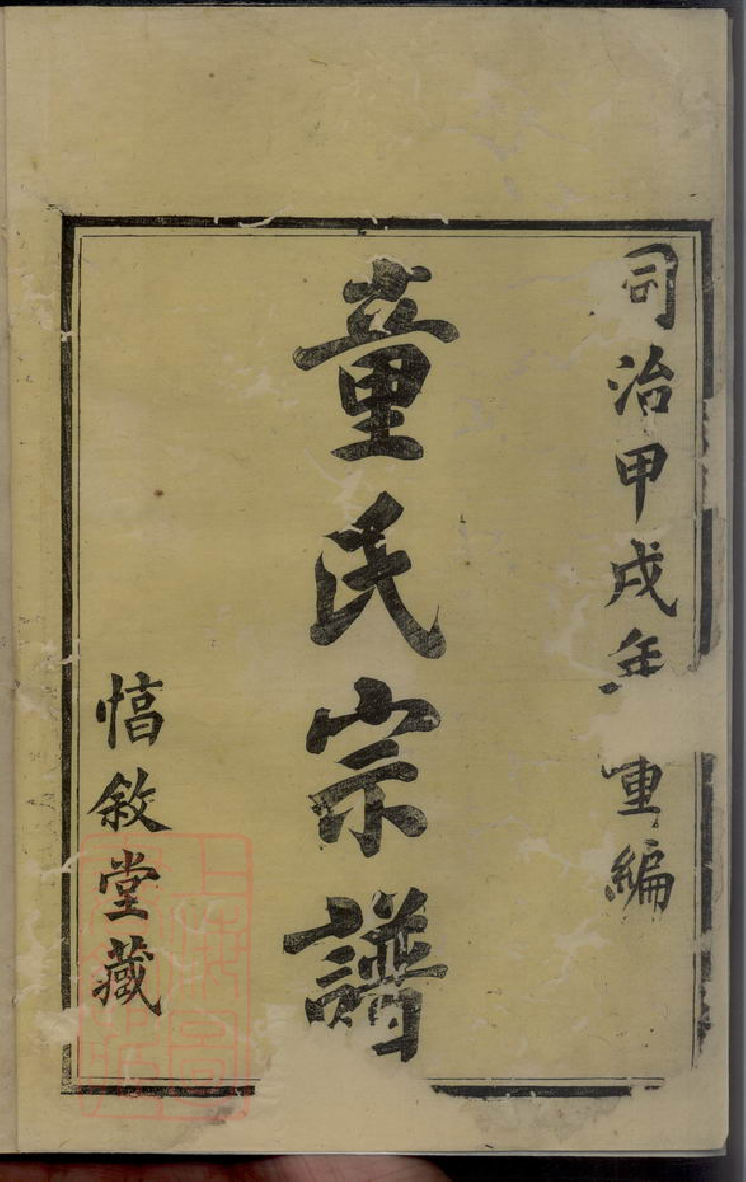 同治甲戌年重編
董氏宗譜
惇敘堂藏